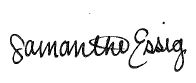 Samantha Essig